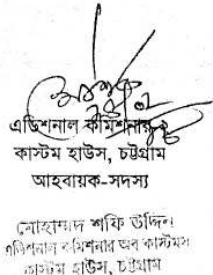 এডিশনাল কমিশনার
কাস্টম হাউস, চট্টগ্রাম
আহবায়ক-সদস্য
মোহাম্মদ শফি উদ্দিন
এডিশনাল কমিশনার অব কাস্টমস
কাস্টম হাউস, চট্টগ্রাম